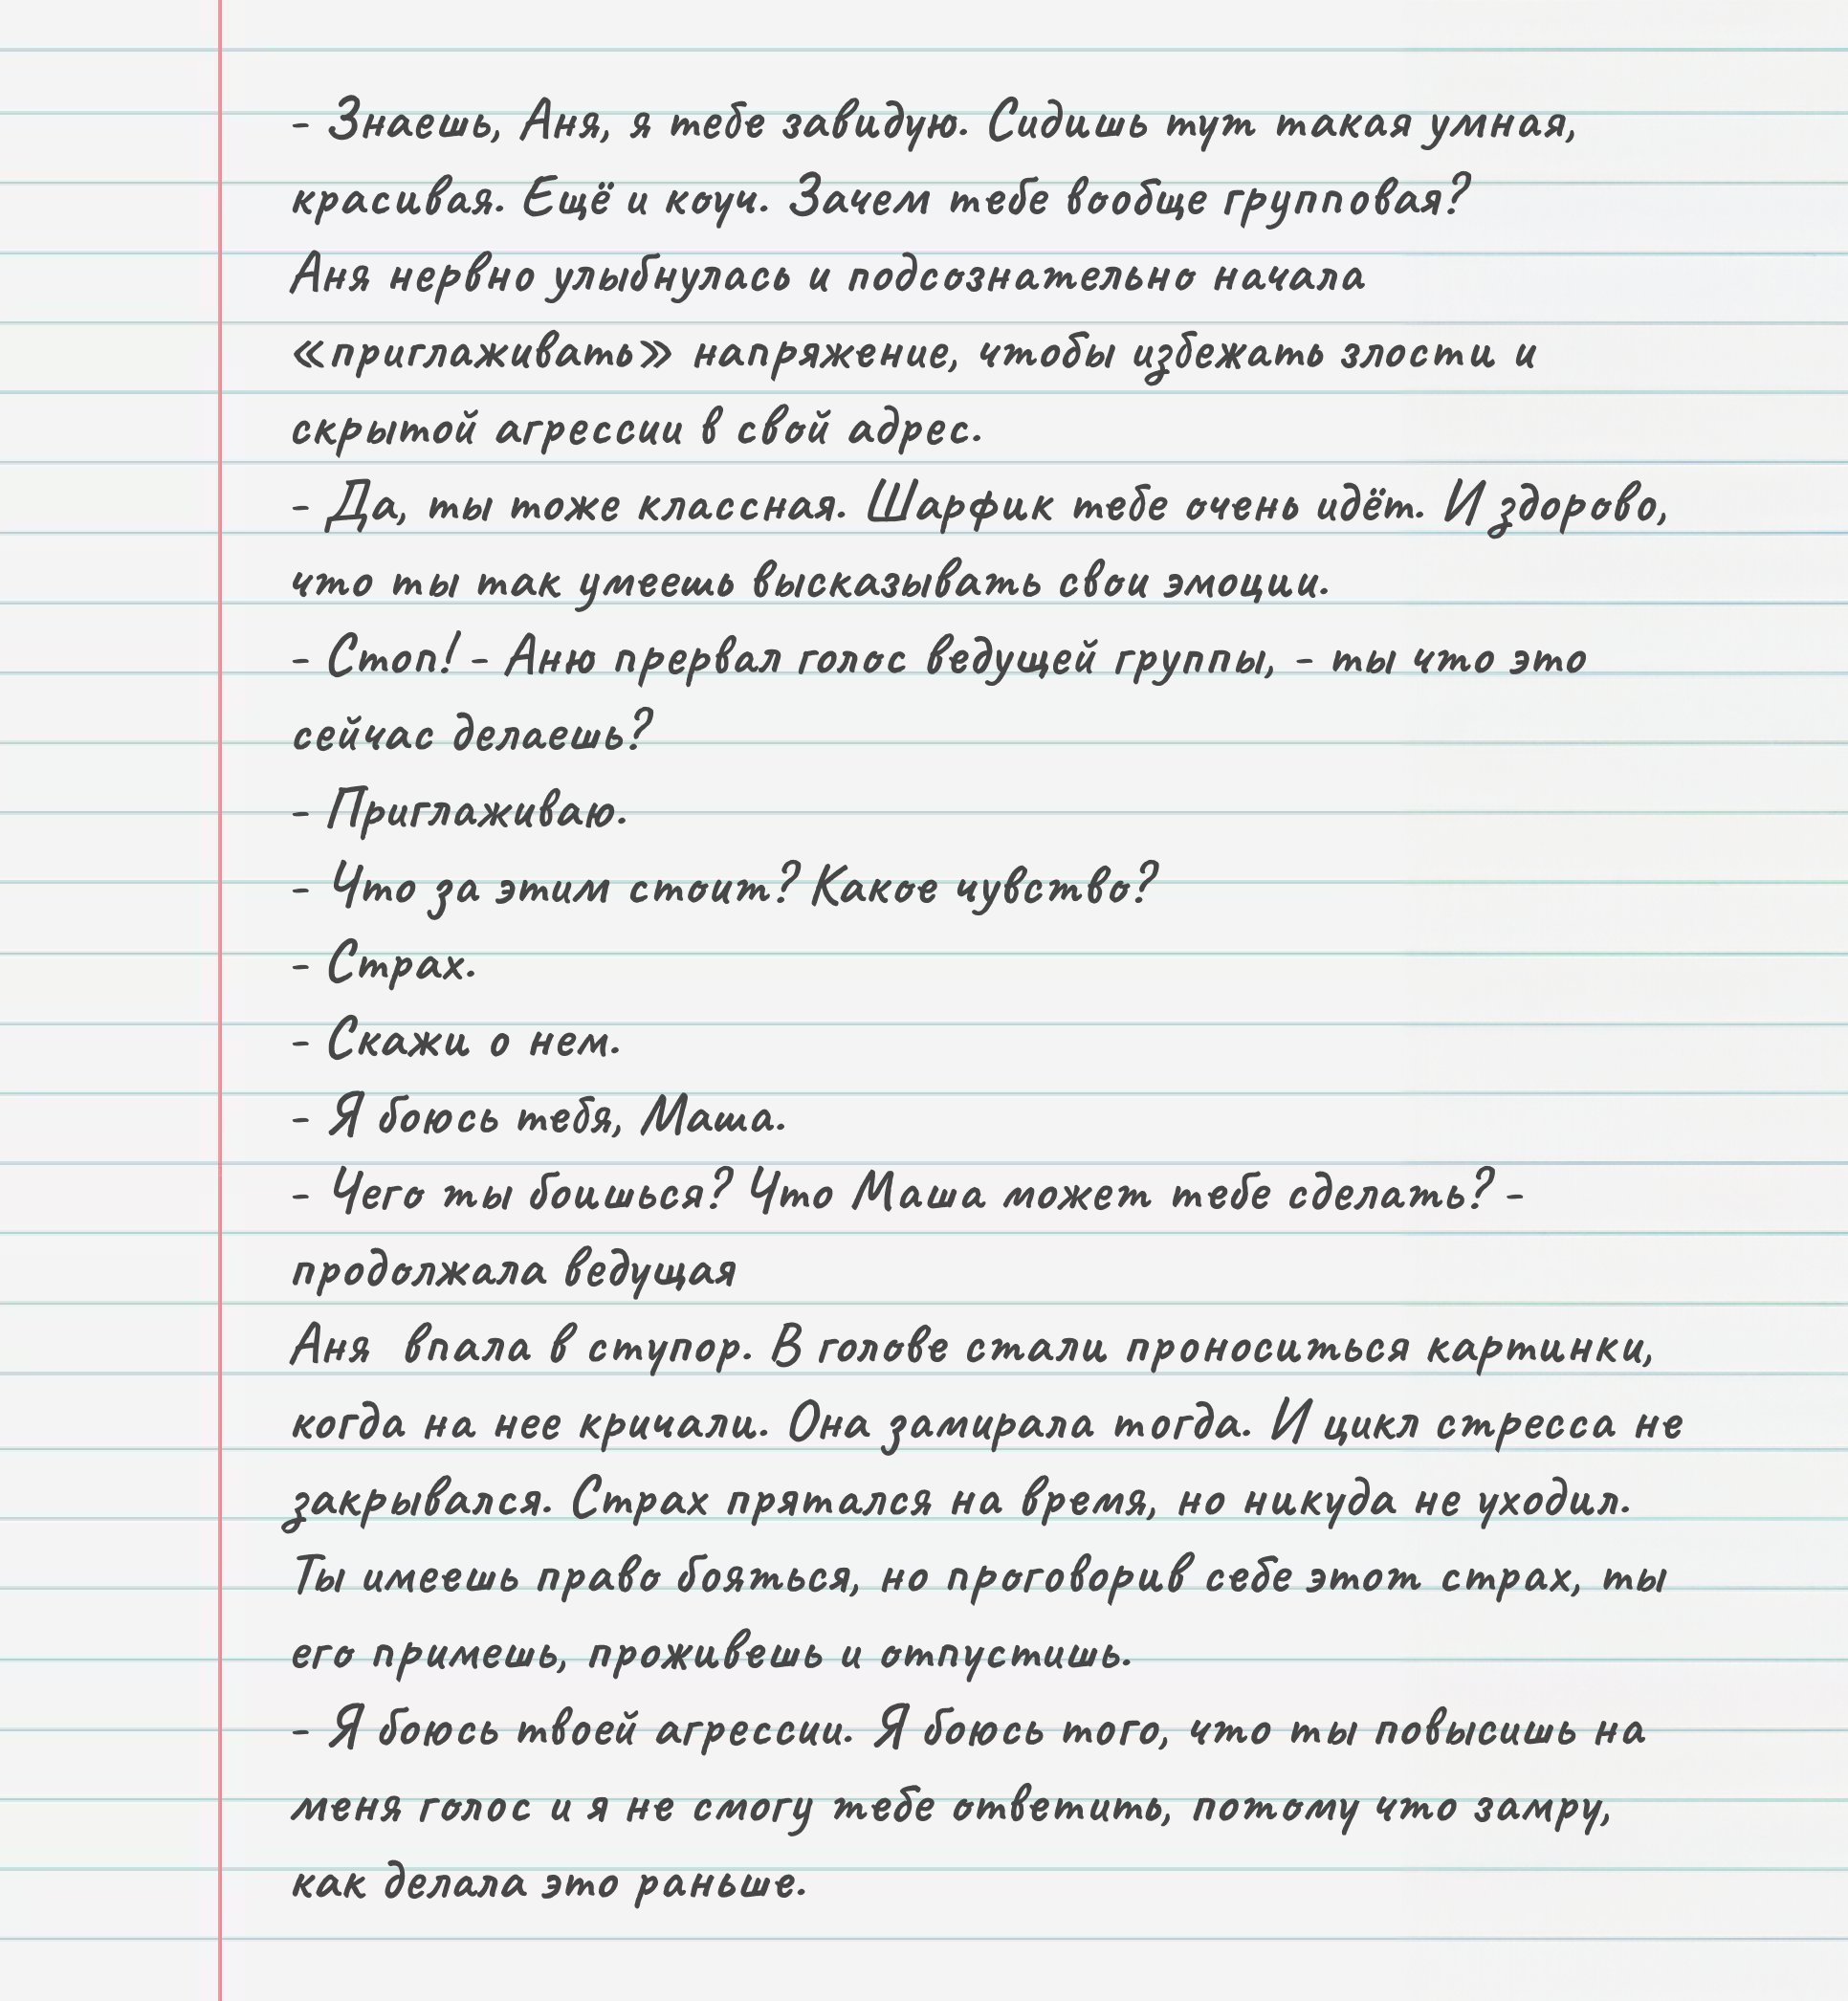 - Знаешь, Аня, я тебе завидую. Сидишь тут такая умная,
красивая. Ещё и коуч. Зачем тебе вообще групповая?
Аня нервно улыбнулась и подсознательно начала
«приглаживать» напряжение, чтобы избежать злости и
скрытой агрессии в свой адрес.
- Да, ты тоже классная. Шарфик тебе очень идёт. И здорово,
что ты так умеешь высказывать свои эмоции.
- Стоп! - Аню прервал голос ведущей группы, - ты что это
сейчас делаешь?
- Приглаживаю.
- Что за этим стоит? Какое чувство?
- Страх.
- Скажи о нем.
- Я боюсь тебя, Маша.
- Чего ты боишься? Что Маша может тебе сделать? -
продолжала ведущая
Аня  впала в ступор. В голове стали проноситься картинки,
когда на нее кричали. Она замирала тогда. И цикл стресса не
закрывался. Страх прятался на время, но никуда не уходил.
Ты имеешь право бояться, но проговорив себе этот страх, ты
его примешь, проживешь и отпустишь.
- Я боюсь твоей агрессии. Я боюсь того, что ты повысишь на
меня голос и я не смогу тебе ответить, потому что замру,
как делала это раньше.